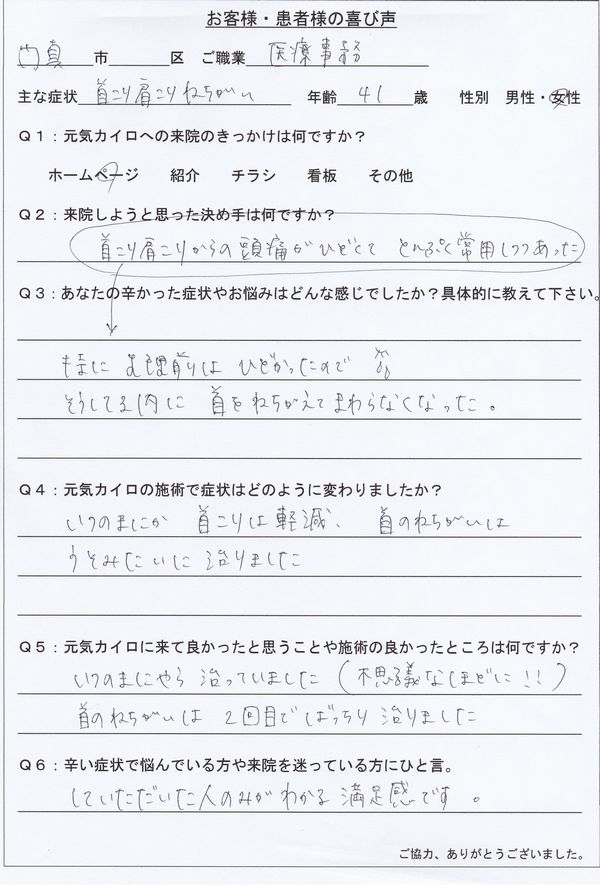 お客様・患者様の喜び声
門真 市 区 ご職業 医療事務
主な症状 首こり肩こりねちがい 年齢 41 歳 性別 男性・女性
Q1：元気カイロへの来院のきっかけは何ですか？
ホームページ 紹介 チラシ 看板 その他
Q2：来院しようと思った決め手は何ですか？
首こり肩こりからの頭痛がひどくて とんぷく常用しつつあった
Q3：あなたの辛かった症状やお悩みはどんな感じでしたか？具体的に教えて下さい。
特に生理前りは ひどかったので
そうしてる内に 首をねちがえてまわらなくなった。
Q4：元気カイロの施術で症状はどのように変わりましたか？
いつのまにか 首こりは軽減、 首のねちがいは
うそみたいに 治りました
Q5：元気カイロに来て良かったと思うことや施術の良かったところは何ですか？
いつのまにやら 治っていました（不思議なほどに！！）
首のねちがいは 2回目でばっちり 治りました
Q6：辛い症状で悩んでいる方や来院を迷っている方にひと言。
していただいた人のみがわかる 満足感です 。
ご協力、ありがとうございました。